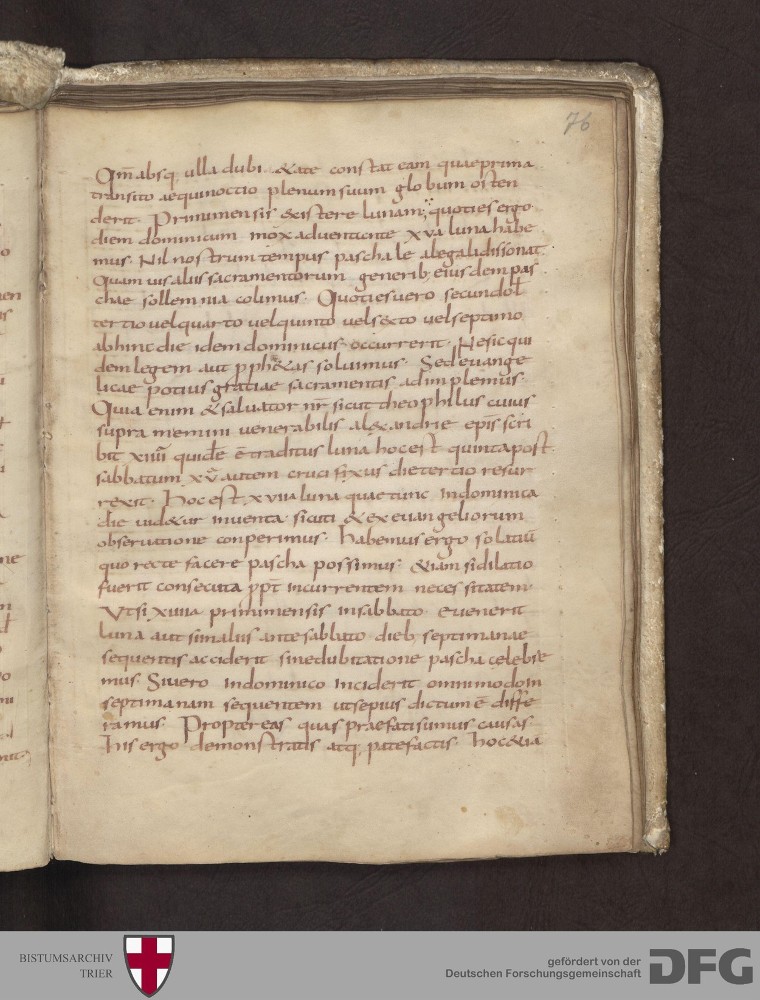 76
Qm̄ absq, ulla dubi&ate constat eam quae prima
transito aequinoctio plenum suum globum osten
derit. Primi mensis existere lunam, quoties ergo
diem dominicum mox adueniente xva luna habe
mus. Nil nostrum tempus paschale a legali dissonat.
Quam uis aliis sacramentorum generib; eiusdem pas
chae sollemnia colimus. Quoties uero secundo ł
tertio uel quarto uel quinto uel s&to uel septimo
abhinc die idem dominicus occurrerit. Ne sic qui
dem legem aut pph&as soluimus. Sed euange
licae potius gratiae sacramentis adimplemus.
Quia enim & saluator nr̄ sicut theophilus cuius
supra memini uenerabilis al&andrie epīs scri
bit xiiii quidē ē traditus luna hoc est quinta post
sabbatum xv autem crucifixus die tertio resur
rexit. Hoc est xvııa luna quae tunc In dominica
die uid&ur inuenta sicuti & ex euangeliorum
obseruatione conperimus. habemus ergo solatiū
quo recte facere pascha possimus &iam si dilatio
fuerit consecuta ppt̄ incurrentem necessitatem
Ut si xiiiia primi mensis in sabbato euenerit
luna aut si in aliis ante sabbato dieb; septimanae
sequentis acciderit sine dubitatione pascha celebre
mus. Si uero In dominico Inciderit omnimodo in
septimanam sequentem ut sepius dictum ē diffe
ramus. Propter eas quas praefati sumus causas
his ergo demonstratis atq; patefactis. hoc &ia
BISTUMSARCHIV
TRIER
gefördert von der
Deutschen Forschungsgemeinschaft
DFG